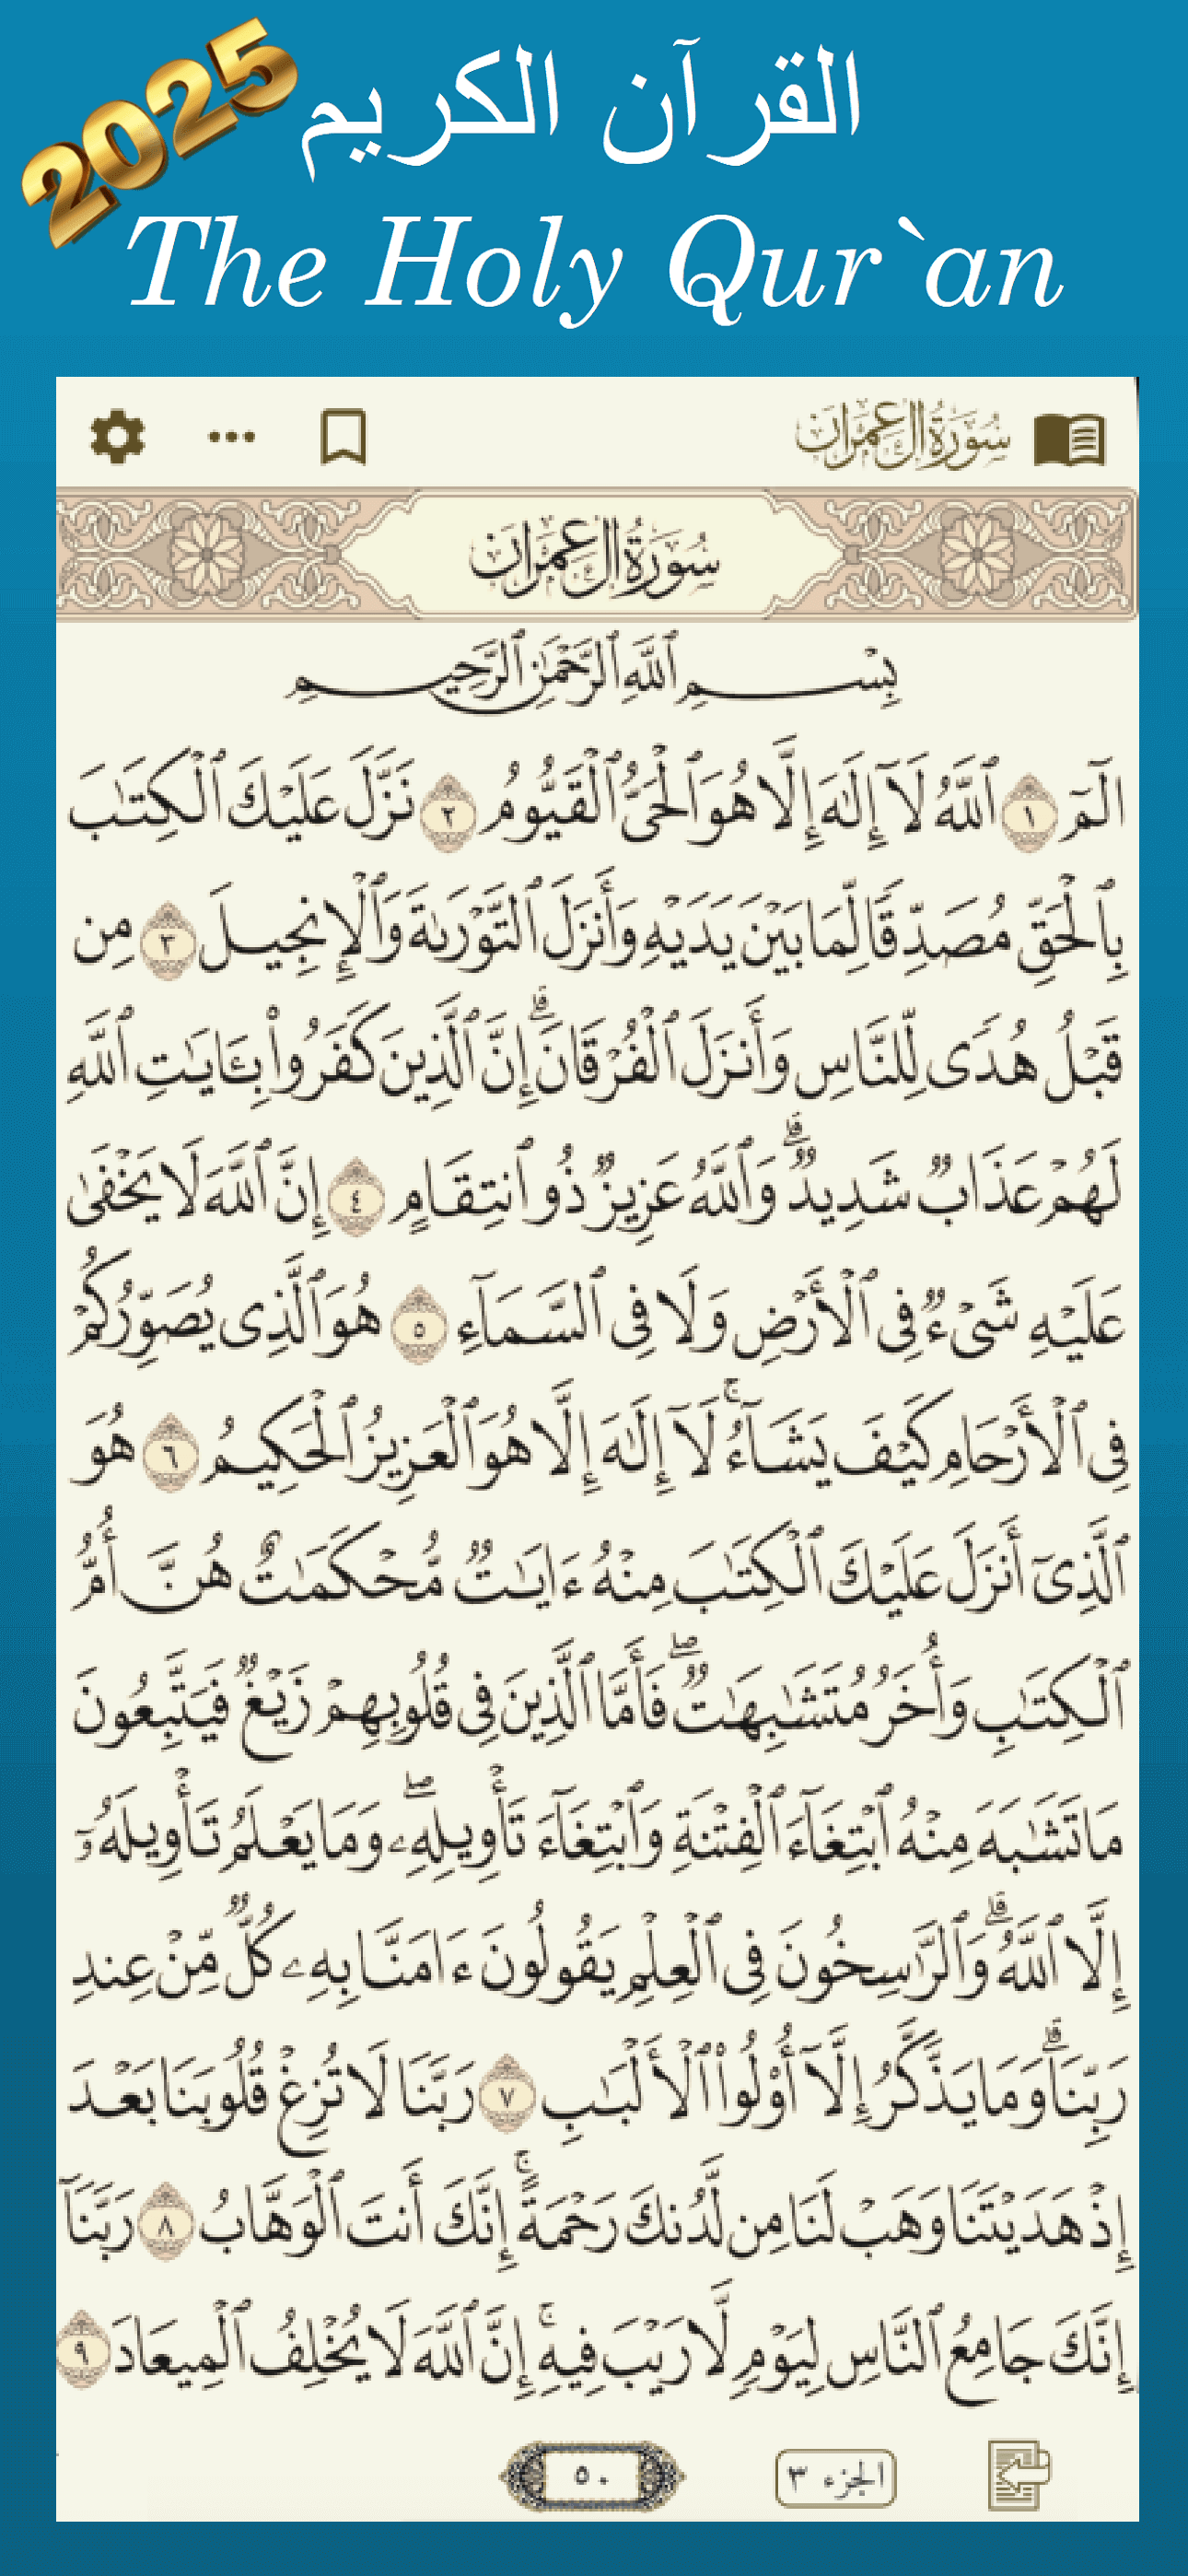 2025
القرآن الكريم
The Holy Qur`an
سُورَةُ آلِ عِمْرَانَ
سُورَةُ آلِ عِمْرَانَ
بِسْمِ ٱللَّهِ ٱلرَّحْمَٰنِ ٱلرَّحِيمِ
الٓمٓ ١ ٱللَّهُ لَآ إِلَٰهَ إِلَّا هُوَ ٱلْحَىُّ ٱلْقَيُّومُ ٢ نَزَّلَ عَلَيْكَ ٱلْكِتَٰبَ
بِٱلْحَقِّ مُصَدِّقًا لِّمَا بَيْنَ يَدَيْهِ وَأَنزَلَ ٱلتَّوْرَىٰةَ وَٱلْإِنجِيلَ ٣ مِن
قَبْلُ هُدًى لِّلنَّاسِ وَأَنزَلَ ٱلْفُرْقَانَ ۗ إِنَّ ٱلَّذِينَ كَفَرُوا۟ بِـَٔايَٰتِ ٱللَّهِ
لَهُمْ عَذَابٌ شَدِيدٌ ۗ وَٱللَّهُ عَزِيزٌ ذُو ٱنتِقَامٍ ٤ إِنَّ ٱللَّهَ لَا يَخْفَىٰ
عَلَيْهِ شَىْءٌ فِى ٱلْأَرْضِ وَلَا فِى ٱلسَّمَآءِ ٥ هُوَ ٱلَّذِى يُصَوِّرُكُمْ
فِى ٱلْأَرْحَامِ كَيْفَ يَشَآءُ ۚ لَآ إِلَٰهَ إِلَّا هُوَ ٱلْعَزِيزُ ٱلْحَكِيمُ ٦ هُوَ
ٱلَّذِىٓ أَنزَلَ عَلَيْكَ ٱلْكِتَٰبَ مِنْهُ ءَايَٰتٌ مُّحْكَمَٰتٌ هُنَّ أُمُّ
ٱلْكِتَٰبِ وَأُخَرُ مُتَشَٰبِهَٰتٌ ۖ فَأَمَّا ٱلَّذِينَ فِى قُلُوبِهِمْ زَيْغٌ فَيَتَّبِعُونَ
مَا تَشَٰبَهَ مِنْهُ ٱبْتِغَآءَ ٱلْفِتْنَةِ وَٱبْتِغَآءَ تَأْوِيلِهِۦ ۖ وَمَا يَعْلَمُ تَأْوِيلَهُۥٓ
إِلَّا ٱللَّهُ ۗ وَٱلرَّٰسِخُونَ فِى ٱلْعِلْمِ يَقُولُونَ ءَامَنَّا بِهِۦ كُلٌّ مِّنْ عِندِ
رَبِّنَا ۗ وَمَا يَذَّكَّرُ إِلَّآ أُو۟لُوا۟ ٱلْأَلْبَٰبِ ٧ رَبَّنَا لَا تُزِغْ قُلُوبَنَا بَعْدَ
إِذْ هَدَيْتَنَا وَهَبْ لَنَا مِن لَّدُنكَ رَحْمَةً ۚ إِنَّكَ أَنتَ ٱلْوَهَّابُ ٨ رَبَّنَآ
إِنَّكَ جَامِعُ ٱلنَّاسِ لِيَوْمٍ لَّا رَيْبَ فِيهِ ۚ إِنَّ ٱللَّهَ لَا يُخْلِفُ ٱلْمِيعَادَ ٩
الجزء ٣
٥٠